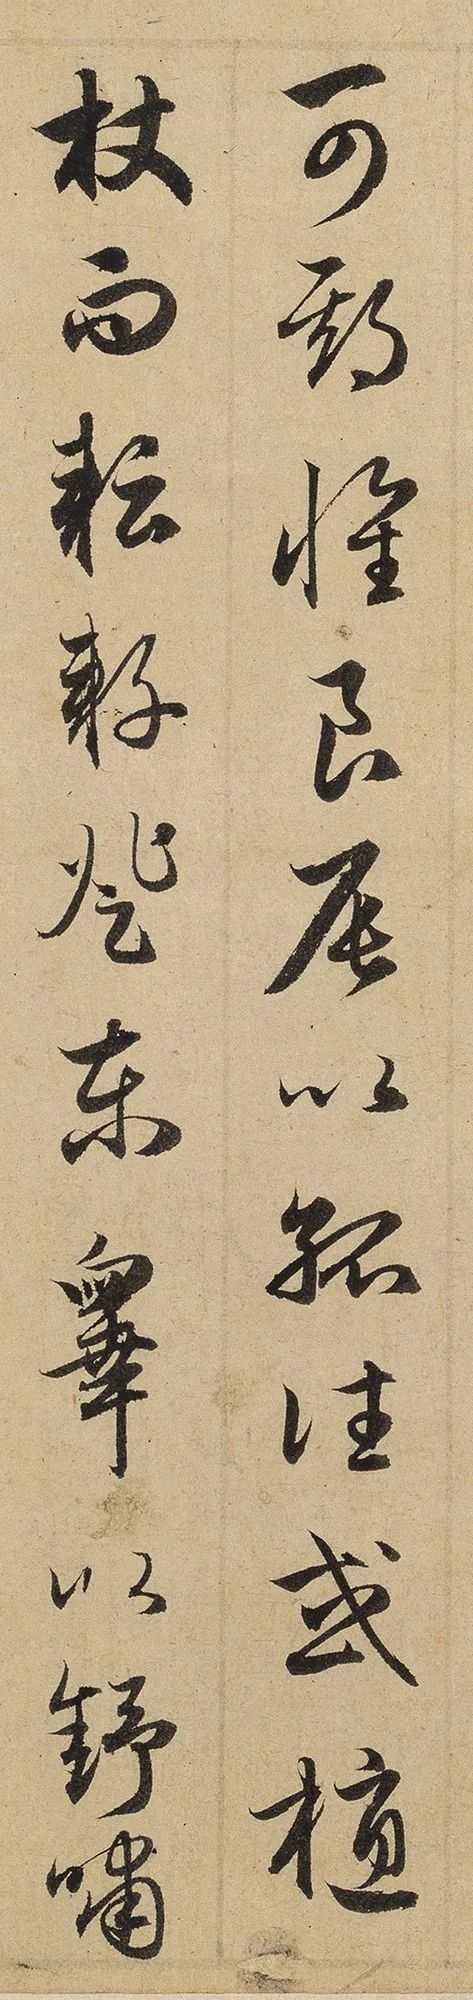 可期懷良辰以孤往或植
杖而耘耔登東皋以舒嘯